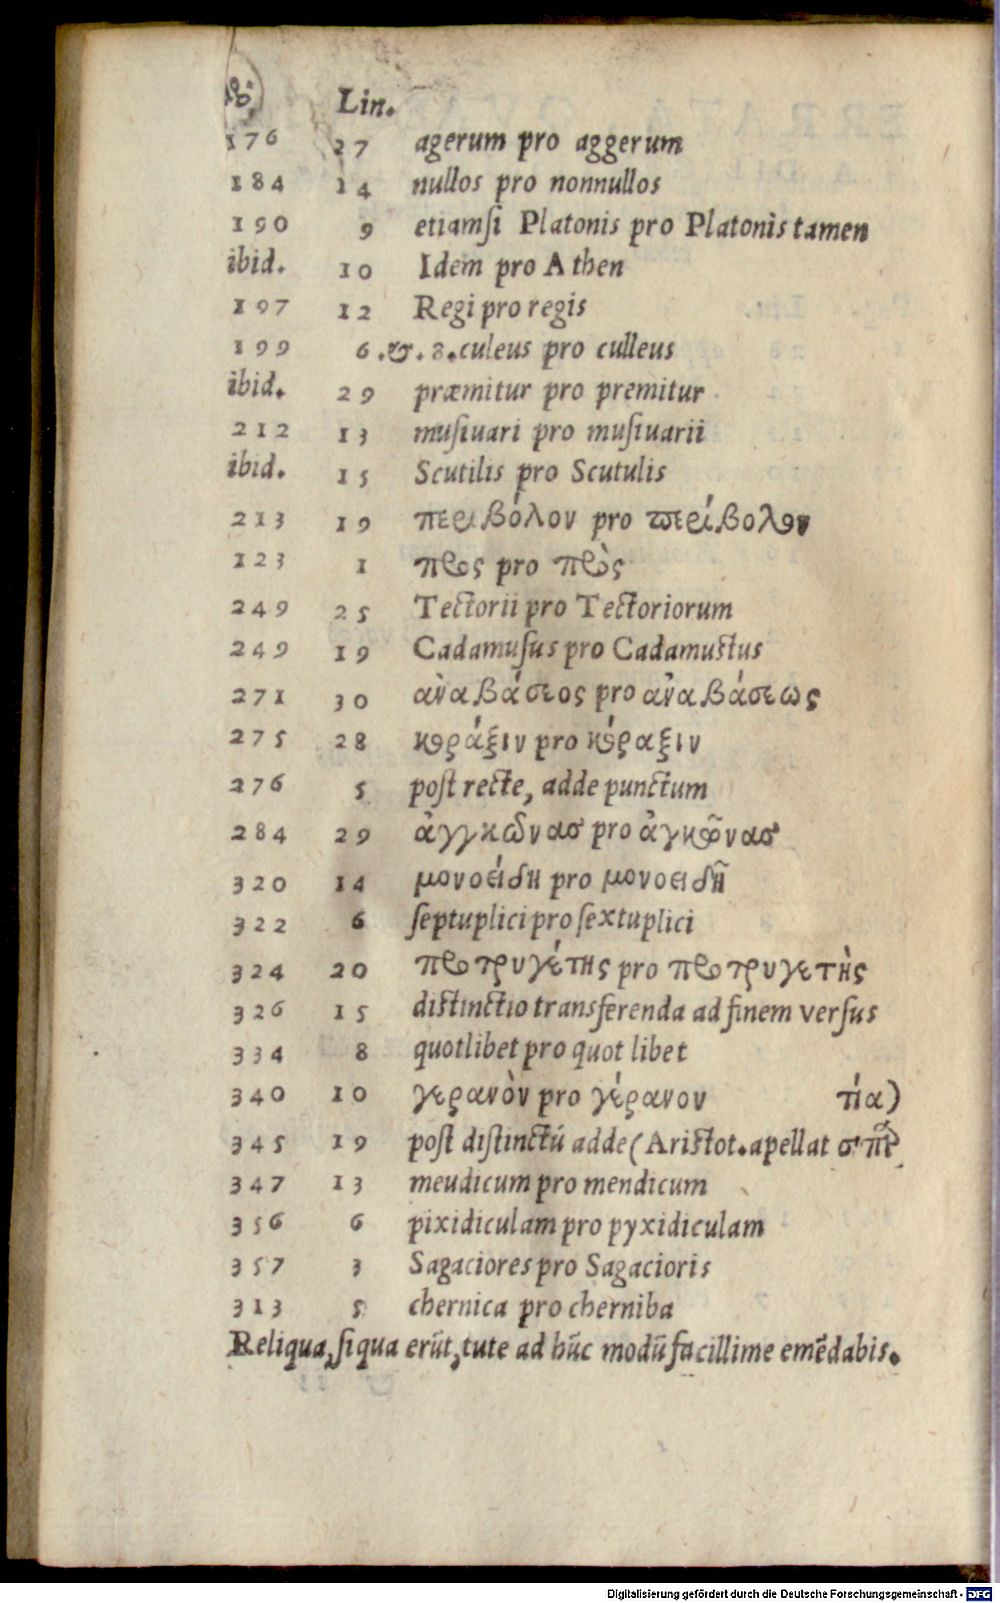 Lin.
176 27 agerum pro aggerum
184 14 nullos pro nonnullos
190 9 etiamſi Platonis pro Platonis tamen
ibid. 10 Idem pro Athen
197 12 Regi pro regis
199 6.&. 8.culeus pro culleus
ibid. 29 præmitur pro premitur
212 13 muſiuari pro muſiuarii
ibid. 15 Scutilis pro Scutulis
213 19 περιβόλον pro ϖερίβολον
123 1 προς pro πρὸς
249 25 Tectorii pro Tectoriorum
249 19 Cadamuſus pro Cadamustus
271 30 αὺαβάσεος pro αὐαβάσεως
275 28 κοράξιν pro κόραξιν
276 5 poſt recte, adde punctum
284 29 ἀγγκῶνας pro ἀγκῶνας
320 14 μονοείδη pro μονοειδῆ
322 6 ſeptuplici pro ſextuplici
324 20 προτρυγέτης pro προτρυγετὴς
326 15 distinctio transferenda ad finem verſus
334 8 quotlibet pro quot libet
340 10 γερανὸν pro γέρανον τία)
345 19 poſt diſtinctũ adde (Aristot. apellat
347 13 meudicum pro mendicum
356 6 pixidiculam pro pyxidiculam
357 3 Sagaciores pro Sagacioris
313 5 chernica pro cherniba
Reliqua, ſi qua erũt, tute ad hũc modũ facillime emẽdabis.
Digitalisierung gefördert durch die Deutsche Forschungsgemeinschaft - DFG